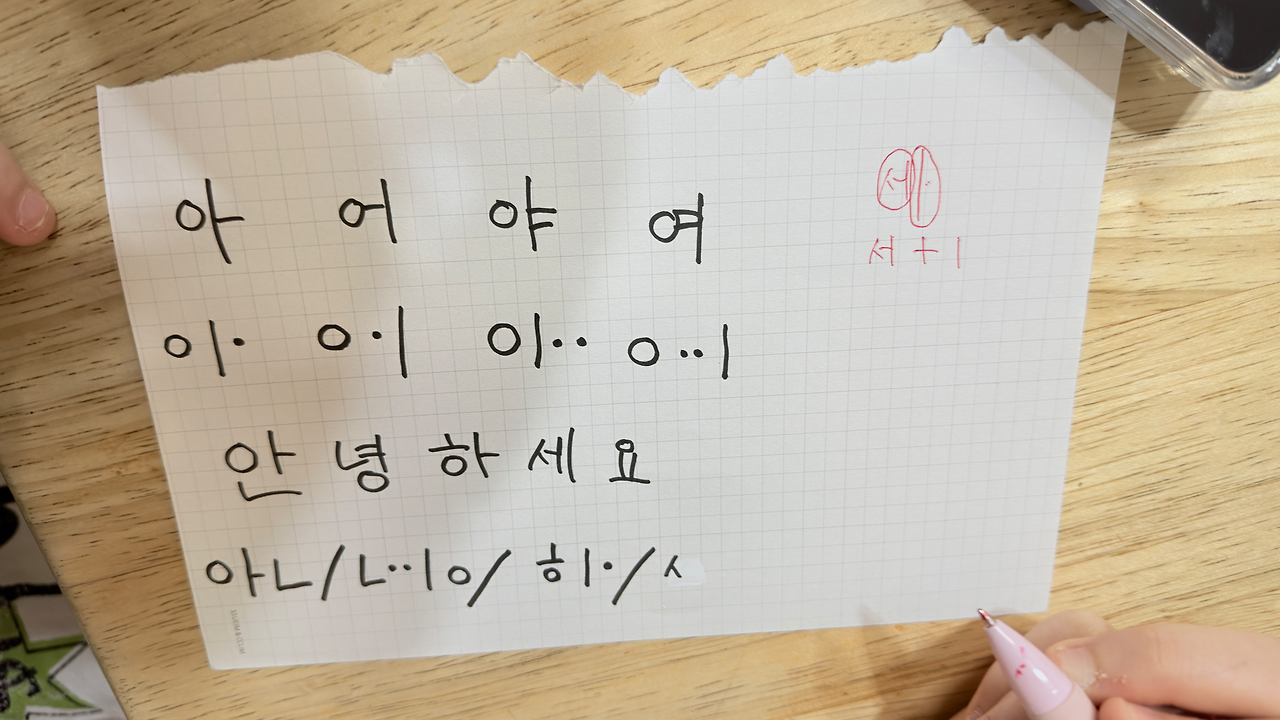 아 어 야 여
ㅇㅣ· ㅇ·ㅣ ㅇㅣ·· ㅇ··ㅣ
안녕하세요
아ㄴ/ㄴ··ㅣㅇ/ㅎㅣ·/ㅅ
세
서+ㅣ